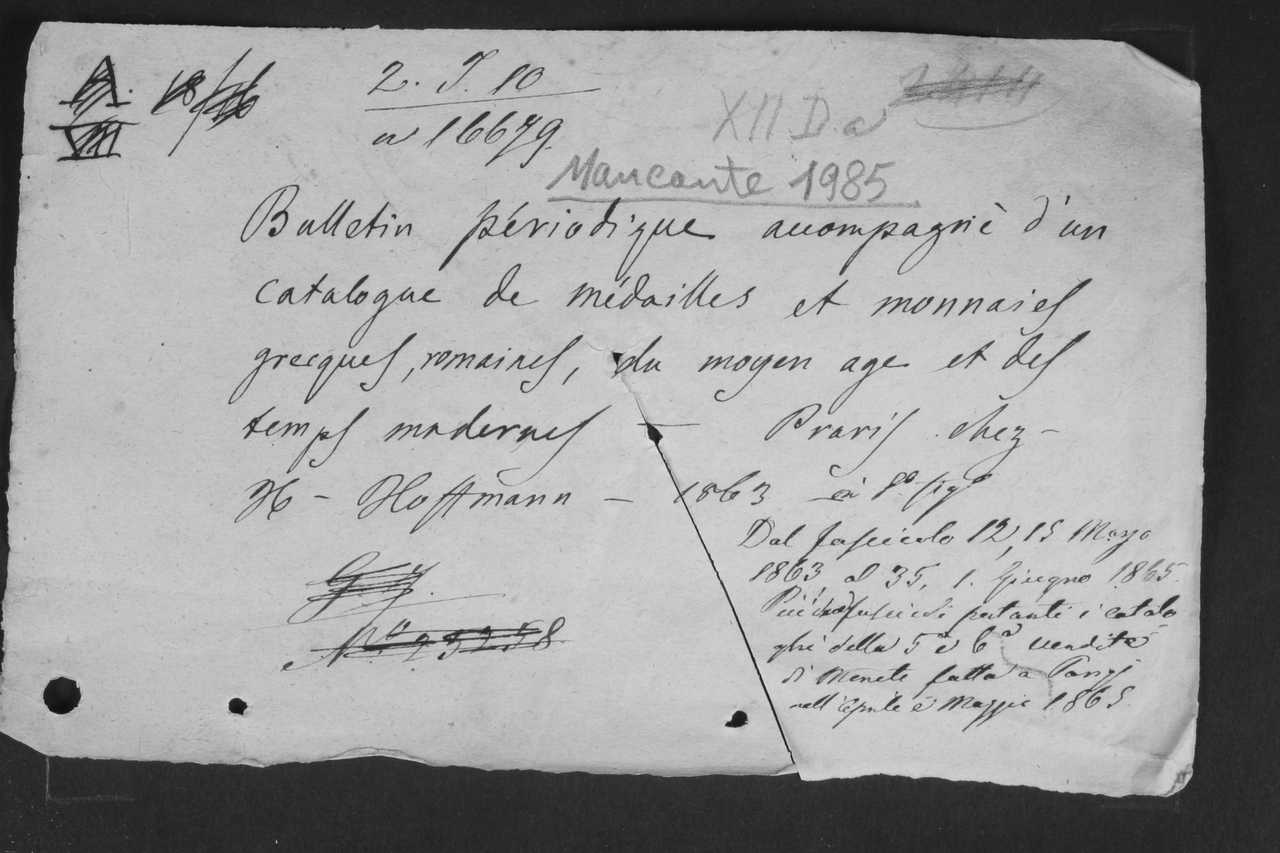 2. I. 10
a 16679
XII D. a
Mancante 1985
Bulletin périodique accompagnè d'un
catalogue de médailles et monnaies
grecques, romaines, du moyen age et des
temps modernes — Praris chez -
H - Hoffmann - 1863 in 8º figº
Dal fascicolo 12, 15 Marzo
1863 al 35, 1. Giugno 1865.
Più fascicoli portanti i catalo
ghi della 5ª e 6ª vendita
di Monete fatta a Parigi
nell'Aprile e Maggio 1865.
Nº 25258